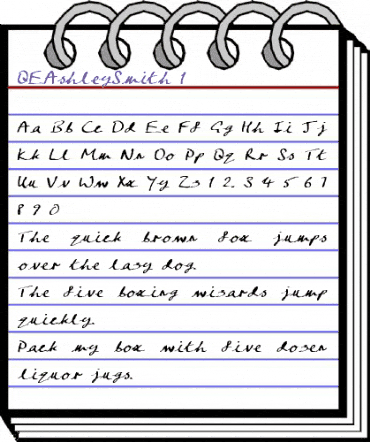 QEAshleySmith 1
Aa Bb Cc Dd Ee Ff Gg Hh Ii Jj
Kk Ll Mm Nn Oo Pp Qq Rr Ss Tt
Uu Vv Ww Xx Yy Zz 1 2 3 4 5 6 7
8 9 0
The quick brown fox jumps
over the lazy dog.
The five boxing wizards jump
quickly.
Pack my box with five dozen
liquor jugs.